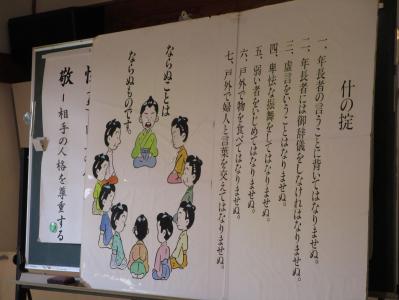 什の掟
一、年長者の言うことに背いてはなりませぬ。
二、年長者には御辞儀をしなければなりませぬ。
三、虚言をいうことはなりませぬ。
四、卑怯な振舞をしてはなりませぬ。
五、弱い者をいじめてはなりませぬ。
六、戸外で物を食べてはなりませぬ。
七、戸外で婦人と言葉を交えてはなりませぬ。
ならぬことは
ならぬものです。
敬 ー相手の人格を尊重する